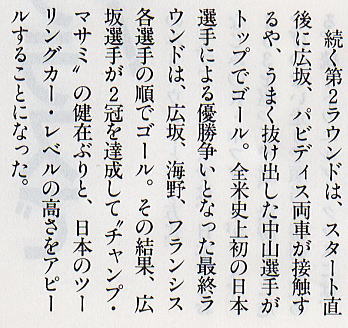 続く第2ラウンドは、スタート直
後に広坂、パビディス両車が接触す
るや、うまく抜け出した中山選手が
トップでゴール。全米史上初の日本
選手による優勝争いとなった最終ラ
ウンドは、広坂、海野、フランシス
各選手の順でゴール。その結果、広
坂選手が2冠を達成して〝チャンプ・
マサミ〟の健在ぶりと、日本のツー
リングカー・レベルの高さをアピー
ルすることになった。